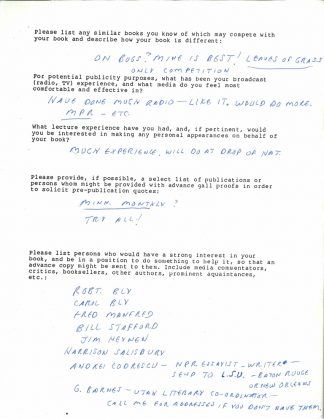 Please list any similar books you know of which may compete with
your book and describe how your book is different:
ON BOGS? MINE IS BEST! LEAVES OF GRASS
ONLY COMPETITION
For potential publicity purposes, what has been your broadcast
(radio, TV) experience, and what media do you feel most
comfortable and effective in?
HAVE DONE MUCH RADIO — LIKE IT. WOULD DO MORE.
MPR — ETC.
What lecture experience have you had, and, if pertinent, would
you be interested in making any personal appearances on behalf of
your book?
MUCH EXPERIENCE, WILL DO AT DROP OF HAT.
Please provide, if possible, a select list of publications or
persons whom might be provided with advance gall proofs in order
to solicit pre-publication quotes:
MINN. MONTHLY?
TRY ALL!
Please list persons who would have a strong interest in your
book, and be in a position to do something to help it, so that an
advance copy might be sent to them. Include media commentators,
critics, booksellers, other authors, prominent aquaintances,
etc.:
ROBT. BLY
CAROL BLY
FRED MANFRED
BILL STAFFORD
JIM HEYNEN
HARRISON SALISBURY
ANDREI CODRESCU — NPR ESSAYIST - WRITER —
SEND TO L.S.U. - BATON ROUGE
OR NEW ORLEANS
G. BARNES - UTAH LITERARY CO-ORDINATOR —
CALL ME FOR ADDRESSES IF YOU DON'T HAVE THEM.